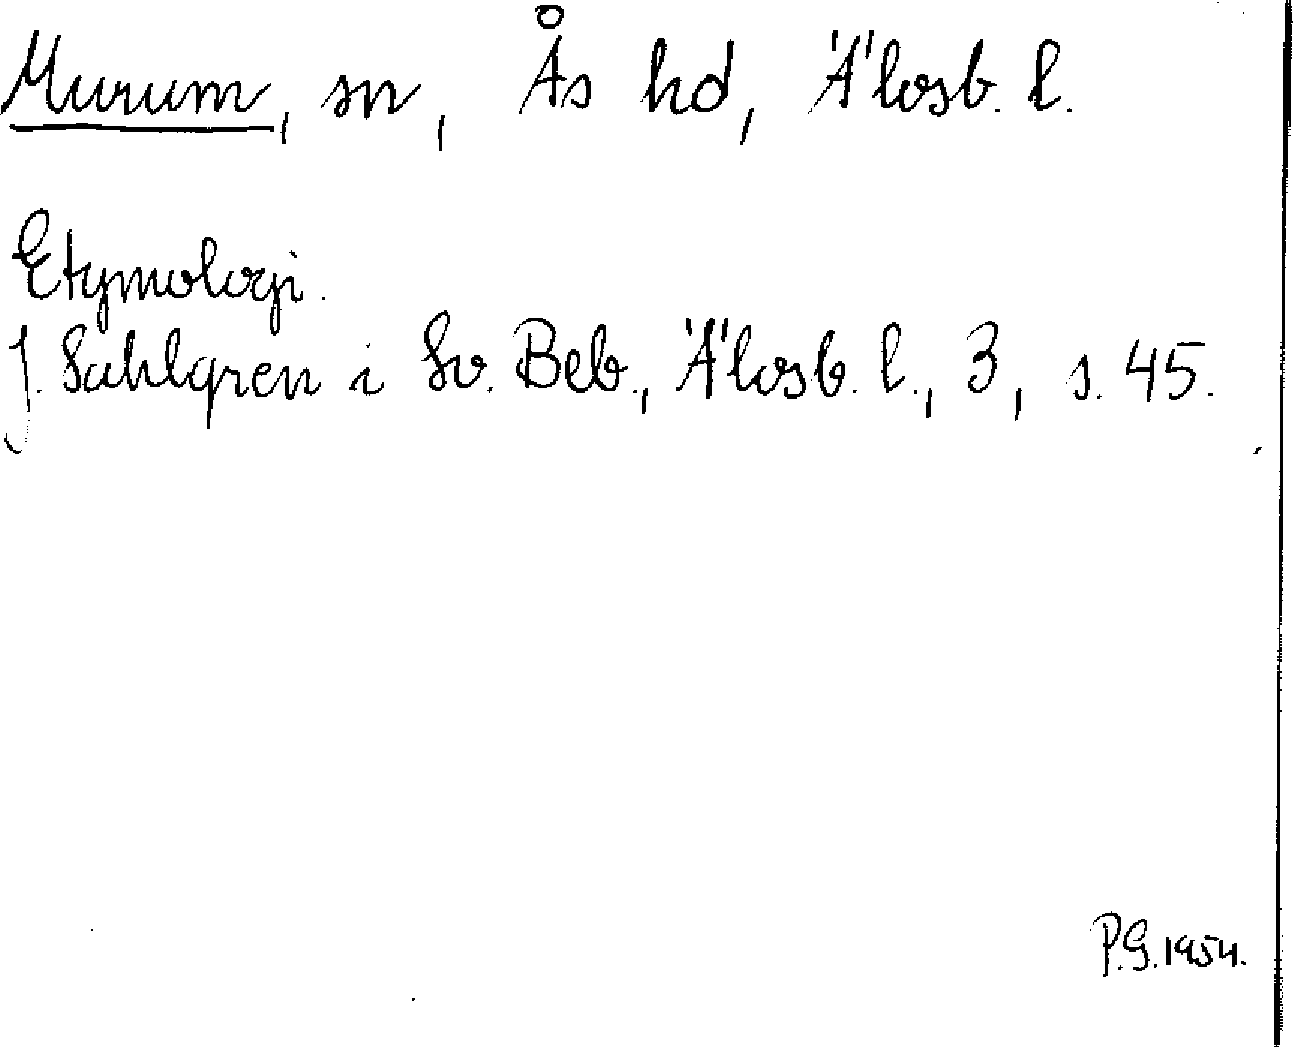 Murum, sn, Ås hd, Älvsb. l.
Etymologi.
J. Sahlgren i Sv. Beb., Älvsb. l., 3, s. 45.
P.G. 1954.